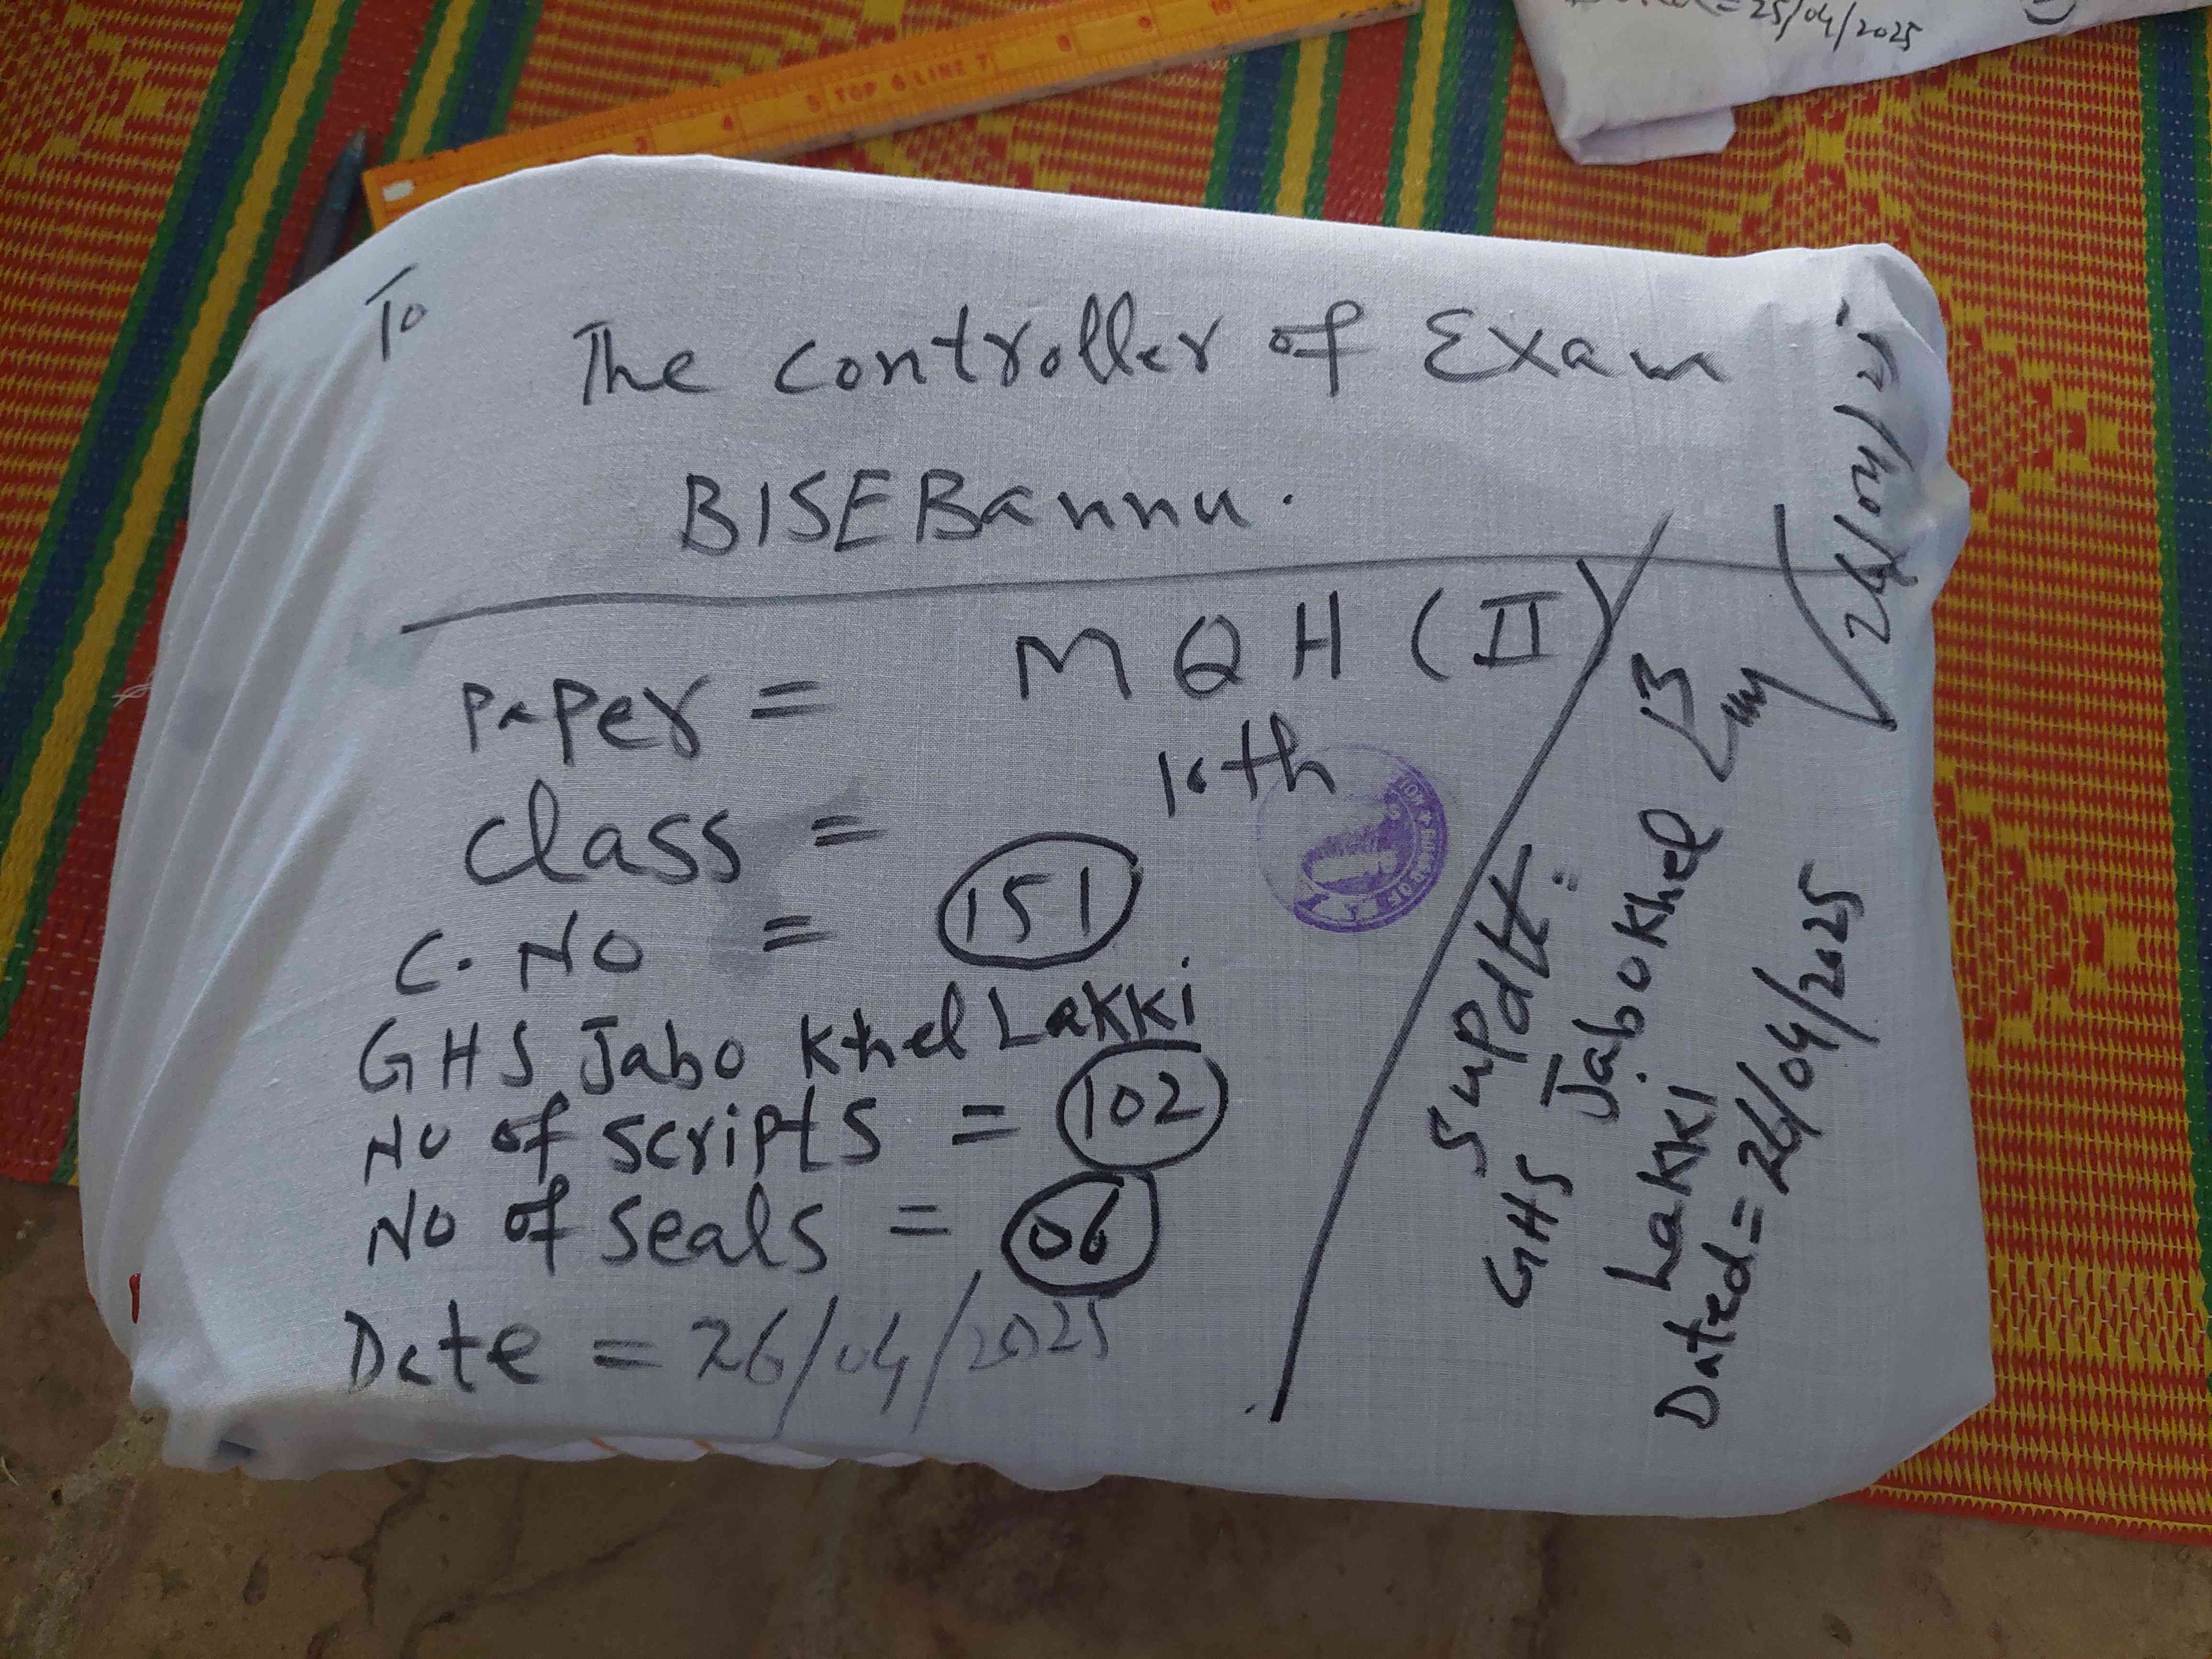 To
The controller of Exam
BISE Bannu.
Paper = MQH (II)
class = 10th
C. No = 151
GHS Jabo Khel Lakki
No of scripts = 102
No of seals = 06
Date = 26/04/2025
Supdtt:
GHS Jabokhel
Lakki
Dated = 26/04/2025
26/04/25
TOP 6 LINE 7
= 25/04/2025